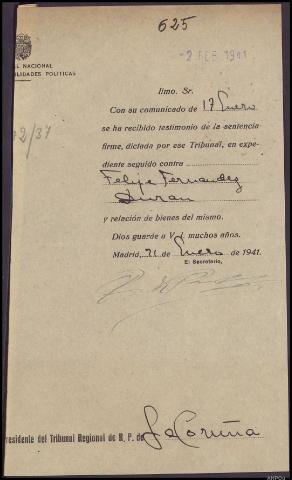 625
-2 FEB 1941
L NACIONAL
ILIDADES POLITICAS
2/37
Ilmo. Sr.
Con su comunicado de 17 Enero
se ha recibido testimonio de la sentencia
firme, dictada por ese Tribunal, en expe-
diente seguido contra
Felipe Fernandez
Duran
y relación de bienes del mismo.
Dios guarde a V. I. muchos años.
Madrid, 21 de Enero de 1941.
El Secretario,
residente del Tribunal Regional de R. P. de La Coruña